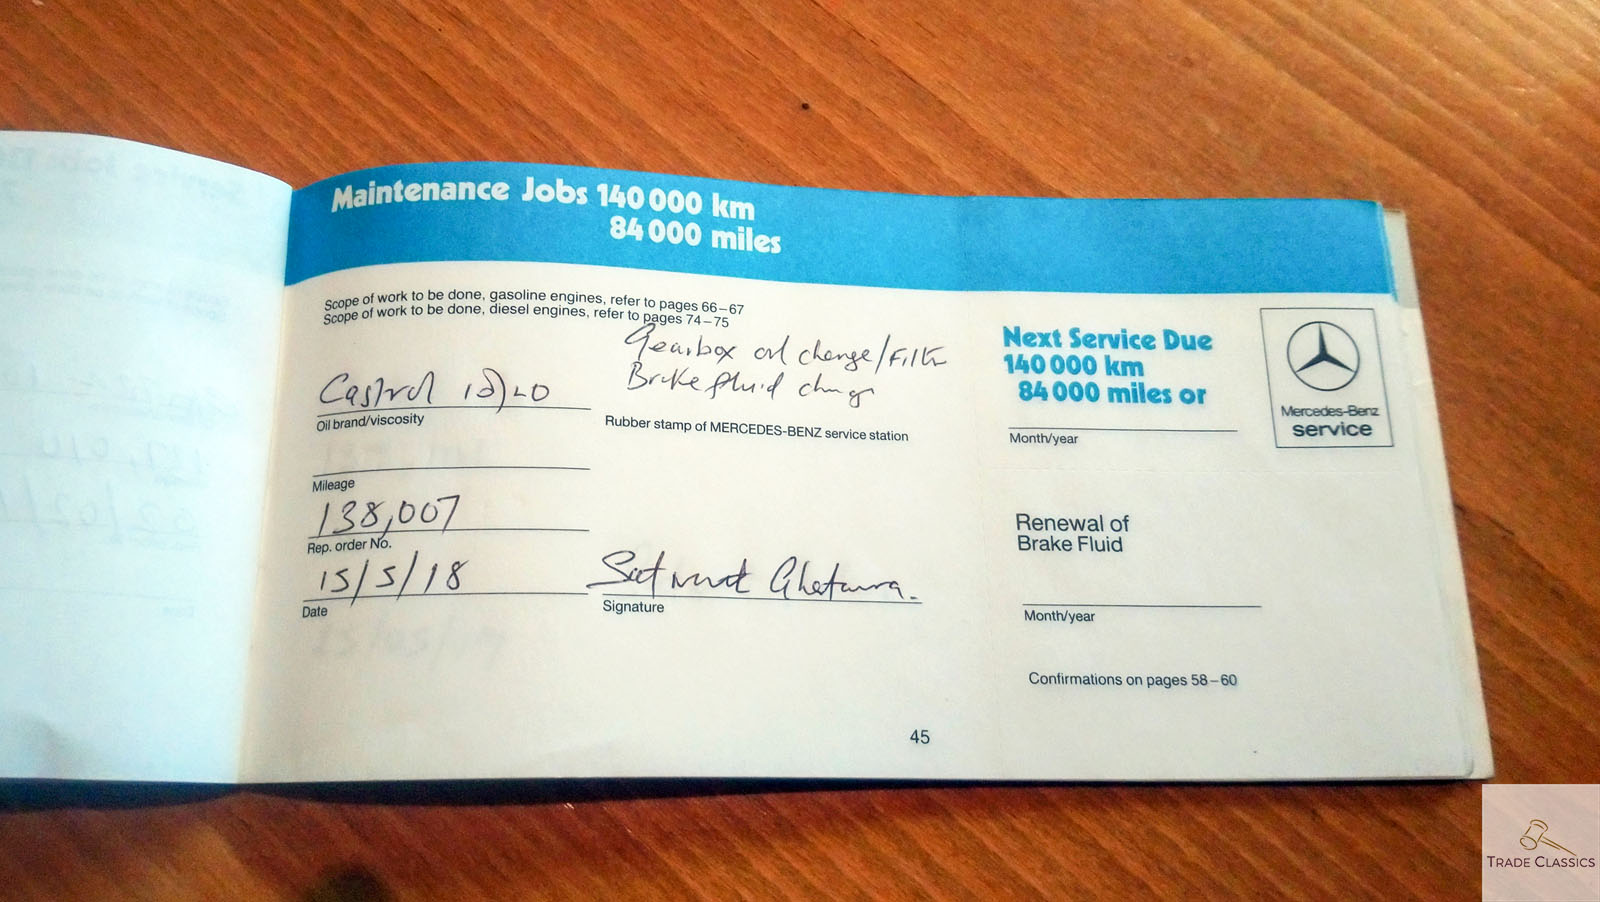 Maintenance Jobs 140 000 km
84 000 miles
Scope of work to be done, gasoline engines, refer to pages 66–67
Scope of work to be done, diesel engines, refer to pages 74–75
Gearbox oil change/Filter
Brake fluid change
Castrol
Oil brand/viscosity
Rubber stamp of MERCEDES-BENZ service station
Mileage
138,007
Rep. order No.
15/5/18
Date
Signature
Next Service Due
140 000 km
84 000 miles or
Month/year
Mercedes-Benz
service
Renewal of
Brake Fluid
Month/year
Confirmations on pages 58–60
45
TRADE CLASSICS